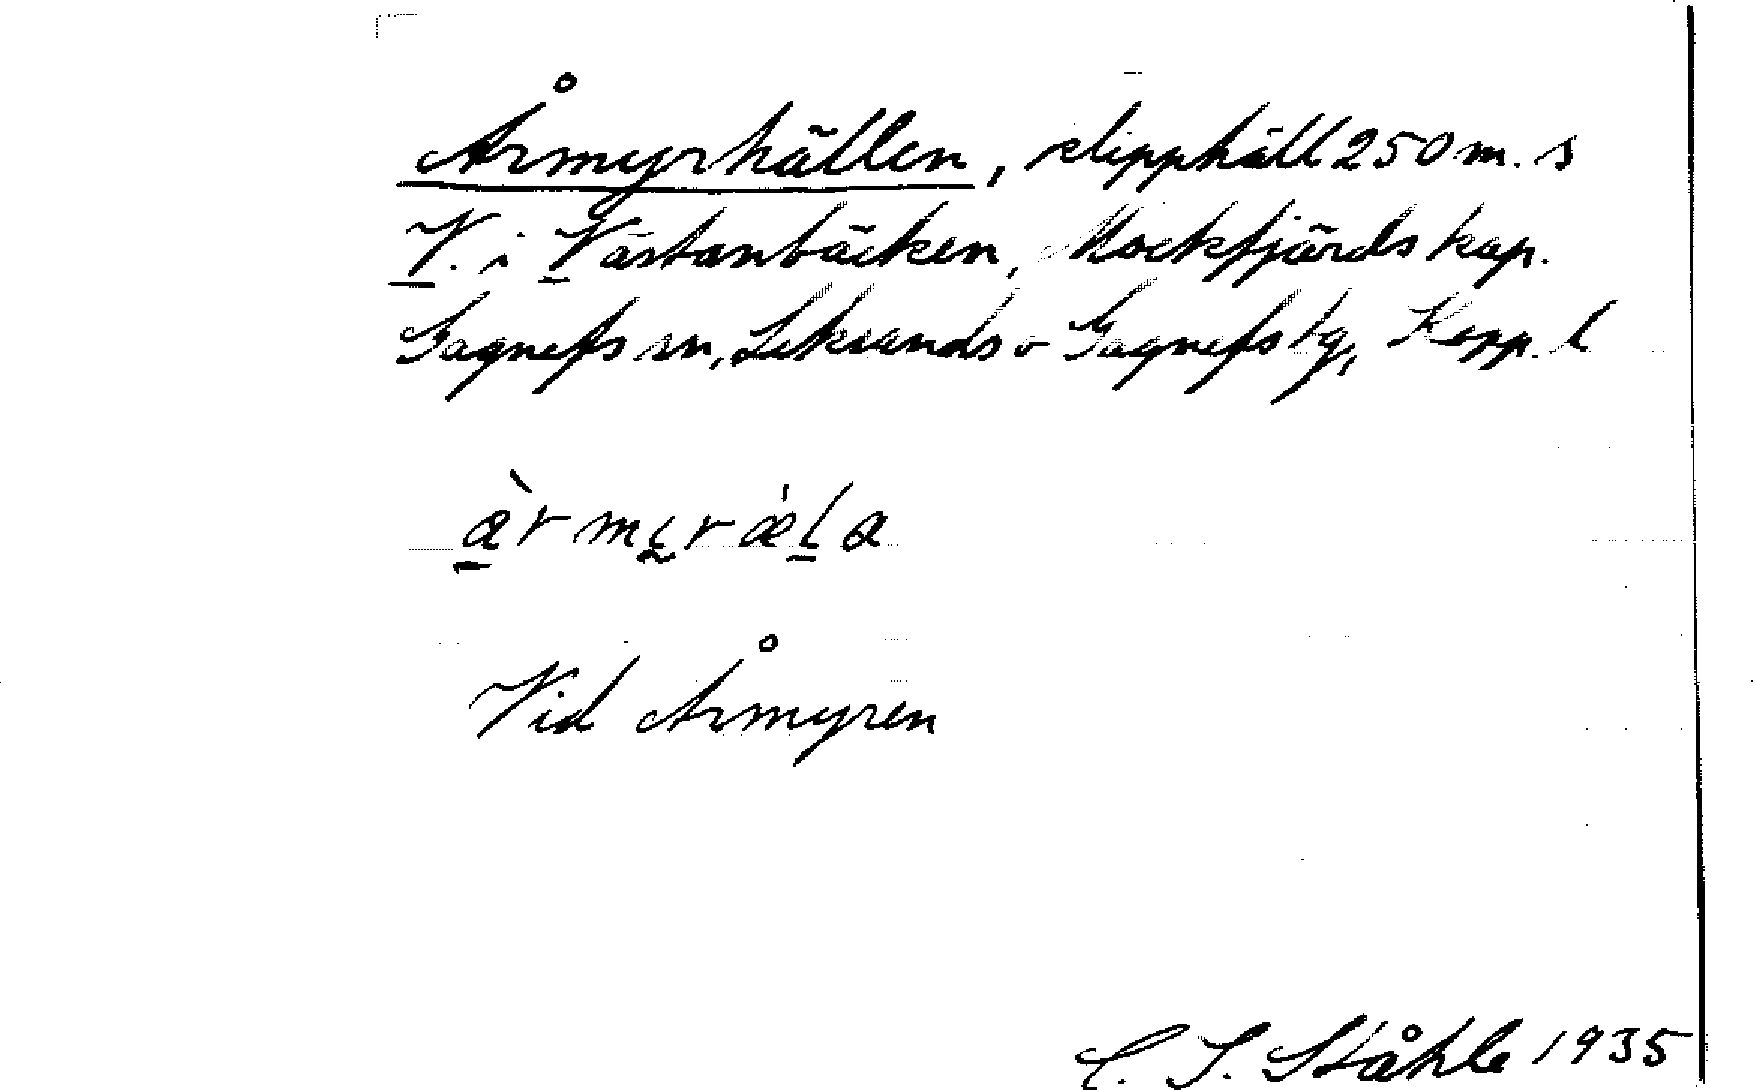 Årmyrhällen, slipphäll 250 m. s
V. i Västanbäcken, Mockfjärds kap.
Gagnefs sn, Leksands o Gagnefs tg, Kopp. l
Vid Årmyren
C. I. Ståhle 1935